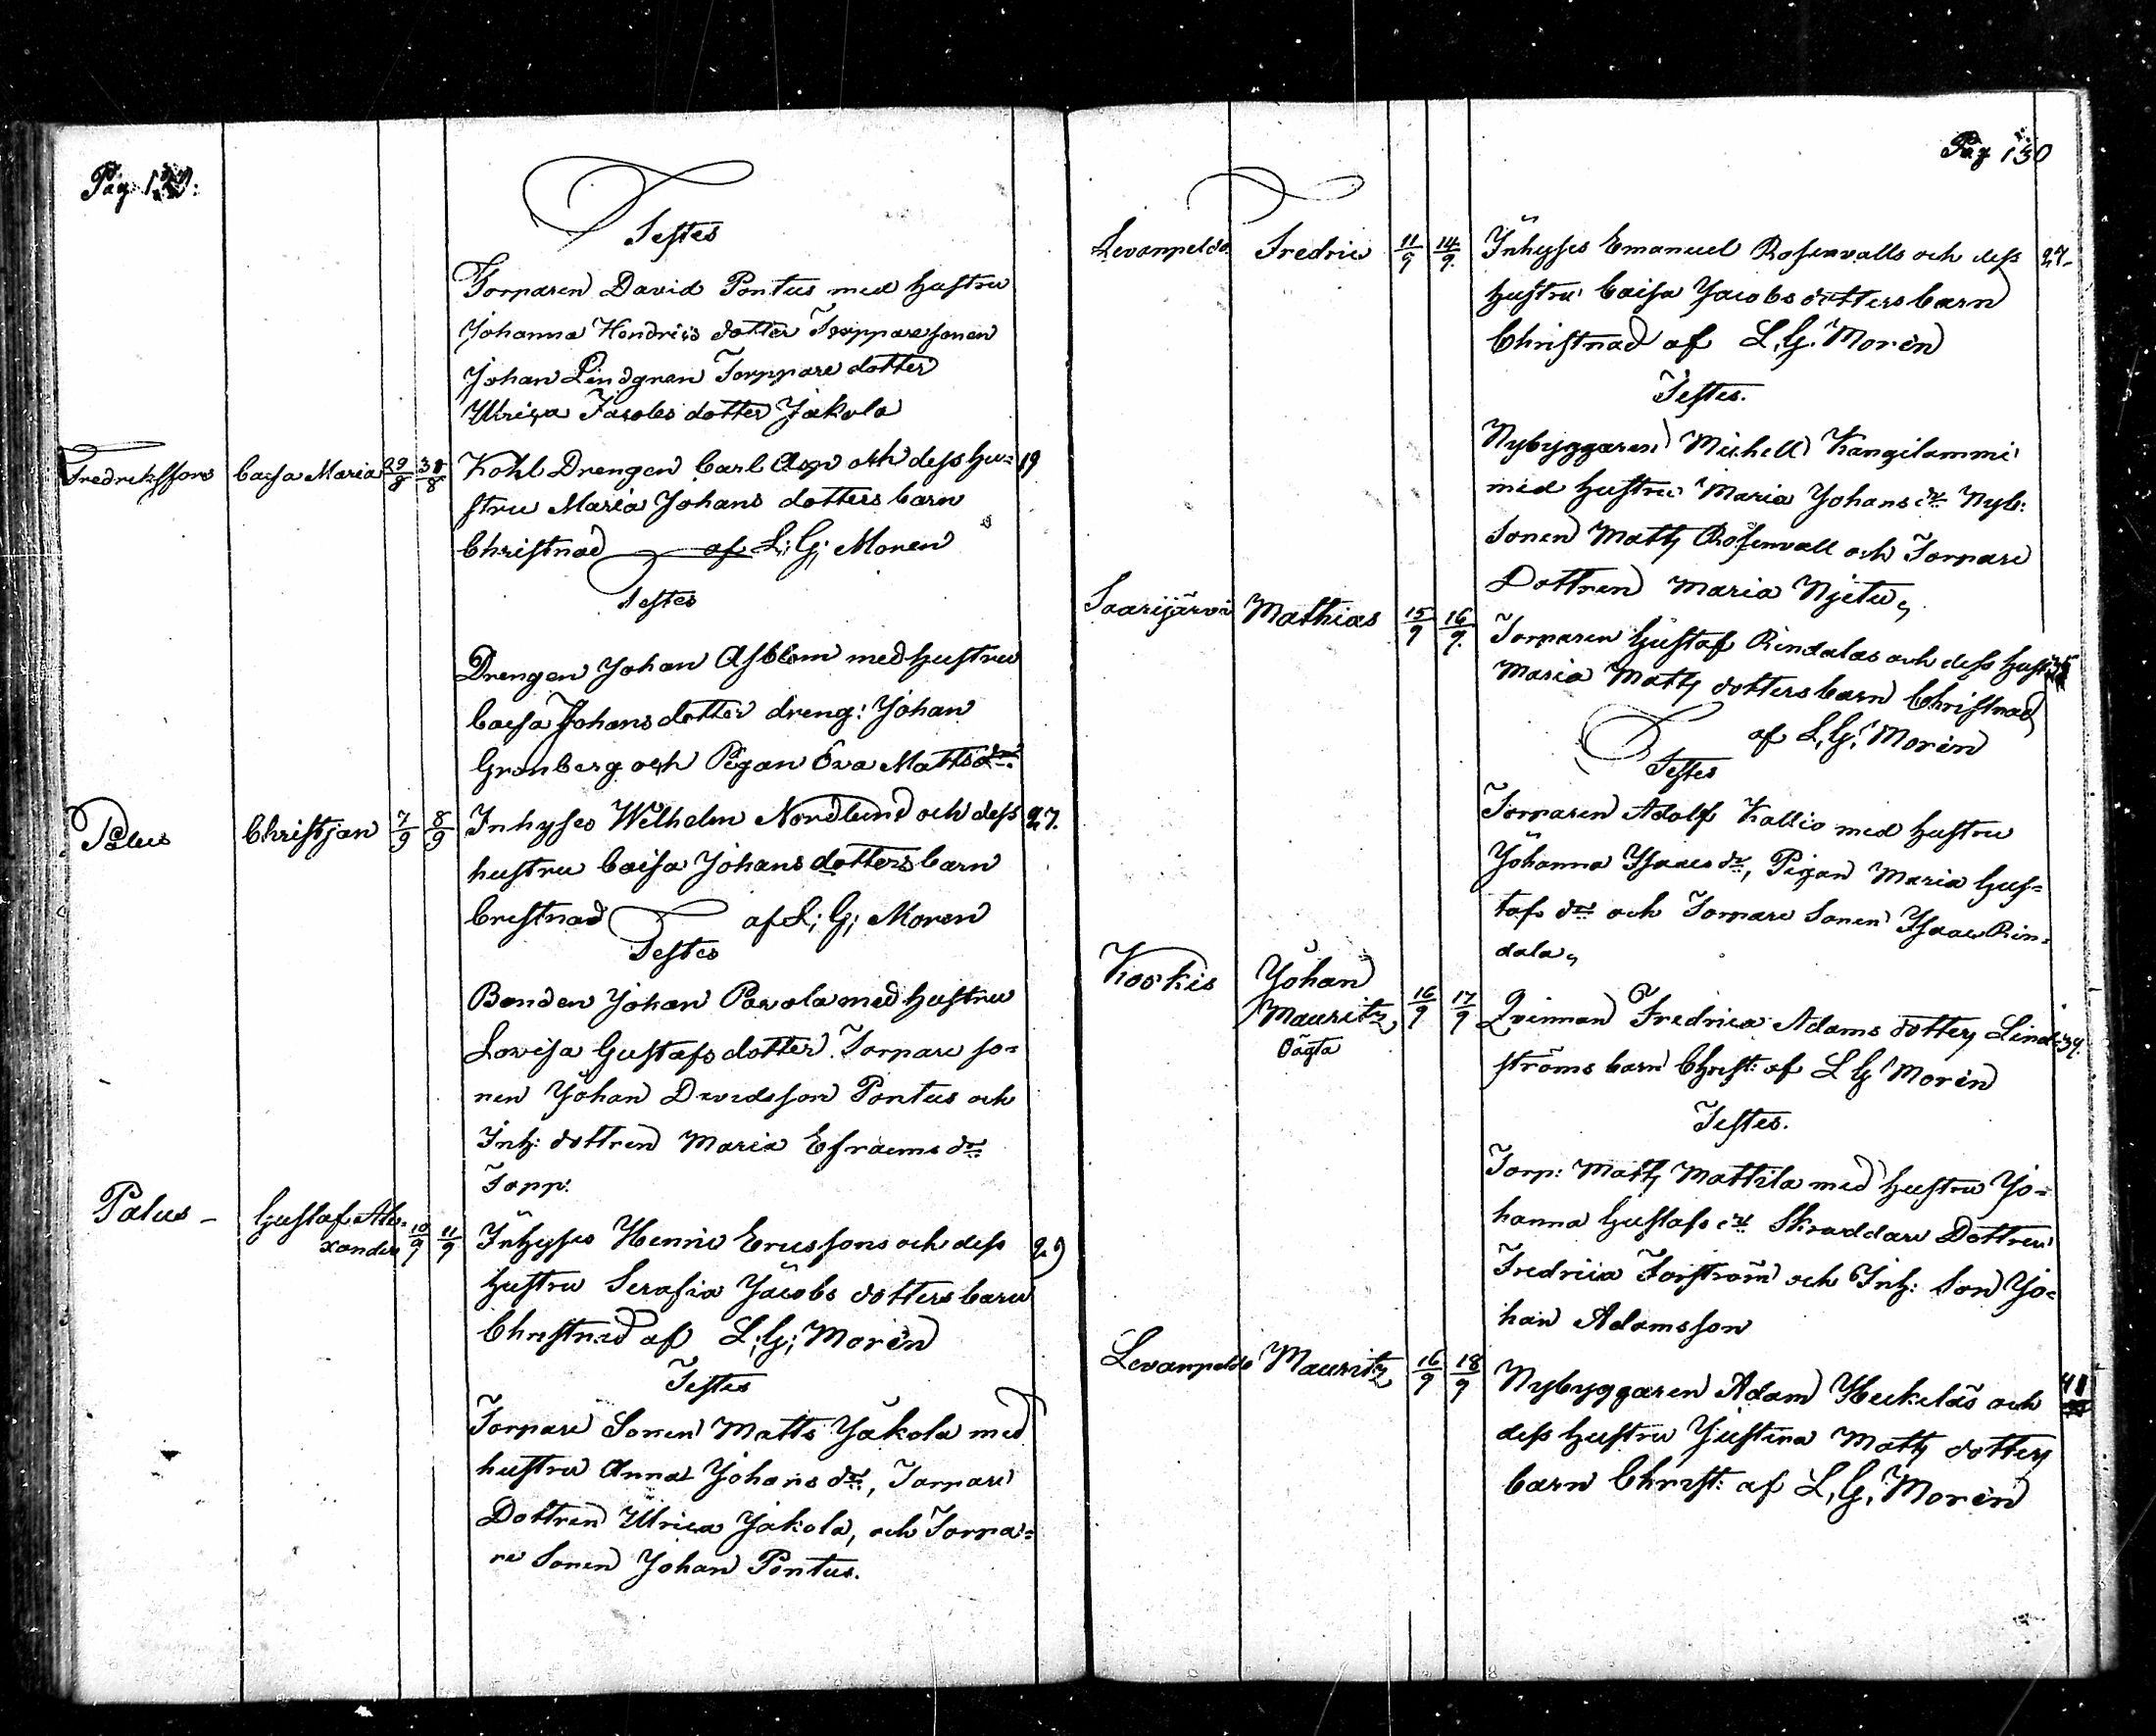 Pag 129:
Testes
Torparen David Pontus med hustru
Johanna Hendrics dotter Torpparesonen
Johan Lindgren Torppare dotter
Ulrica Jacobs dotter Jakola
Fredriksfors Caisa Maria 29/8 30/8 Kohl Drengen Carl Asp och dess hu= 19
stru Maria Johans dotters barn
Christnad af L; G; Moren
Testes
Drengen Johan Asblom med hustru
Caisa Johans dotter dreng: Johan
Grönberg och Pigan Eva Matts dr:
Palus Christjan 7/9 8/9 Inhyses Wilhelm Nordlund och dess 27.
hustru Caisa Johans dotters barn
Crestnad af L; G; Moren
Testes
Bonden Johan Pavola med hustru
Lovisa Gustafs dotter. Torpare so=
nen Johan Davidsson Pontus och
Inh: dottren Maria Efraems dr
Torp:
Palus - Gustaf Ale=
xander 10/9 11/9 Inhyses Henric Ericssons och dess 29
hustru Serafia Jacobs dotters barn
Christnad af L; G; Morén
Testes
Torpare Sonen Matts Jakola med
hustru Anna Johans dr, Torpare
Dottren Ulrica Jakola, och Torpa=
re Sonen Johan Pontus.
Pag 130
Levanpeldo Fredric 11/9 14/9. Inhyses Emanuel Rosenvalls och dess 27.
hustru Caisa Jacobs dotters barn
Christnad af L. G. Morén
Testes.
Nybyggaren Michell Kangilammi
med hustru Maria Johans dr Nyb:
Sonen Matts Rosenvall och Torpare
Dottren Maria Njetu,
Saarijärvi Mathias 15/9 16/9. Torparen Gustaf Rindalas och dess hustru
Maria Matts dotters barn Christnad
af L. G. Morén
Testes
Torparen Adolf Kallio med hustru
Johanna Isaacs dr, Pigan Maria Gus=
tafs dr och Torpare Sonen Isaac Rin=
dala,
Koskis Johan
Mauritz 16/9 17/9 Qvinnan Fredrica Adams dotters Lind= 34.
Oägta
ströms barn Christ: af L G Morén
Testes.
Torp: Matts Mattila med hustru Jo=
hanna Gustafs dr Skraddare Dottren
Fredrica Forström och Inh: Son Jo=
han Adamsson
Levanpeldo Mauritz 16/9 18/9 Nybyggaren Adam Heikeläs och 41
dess hustru Justina Matts dotters
barn Christ: af L. G. Morén